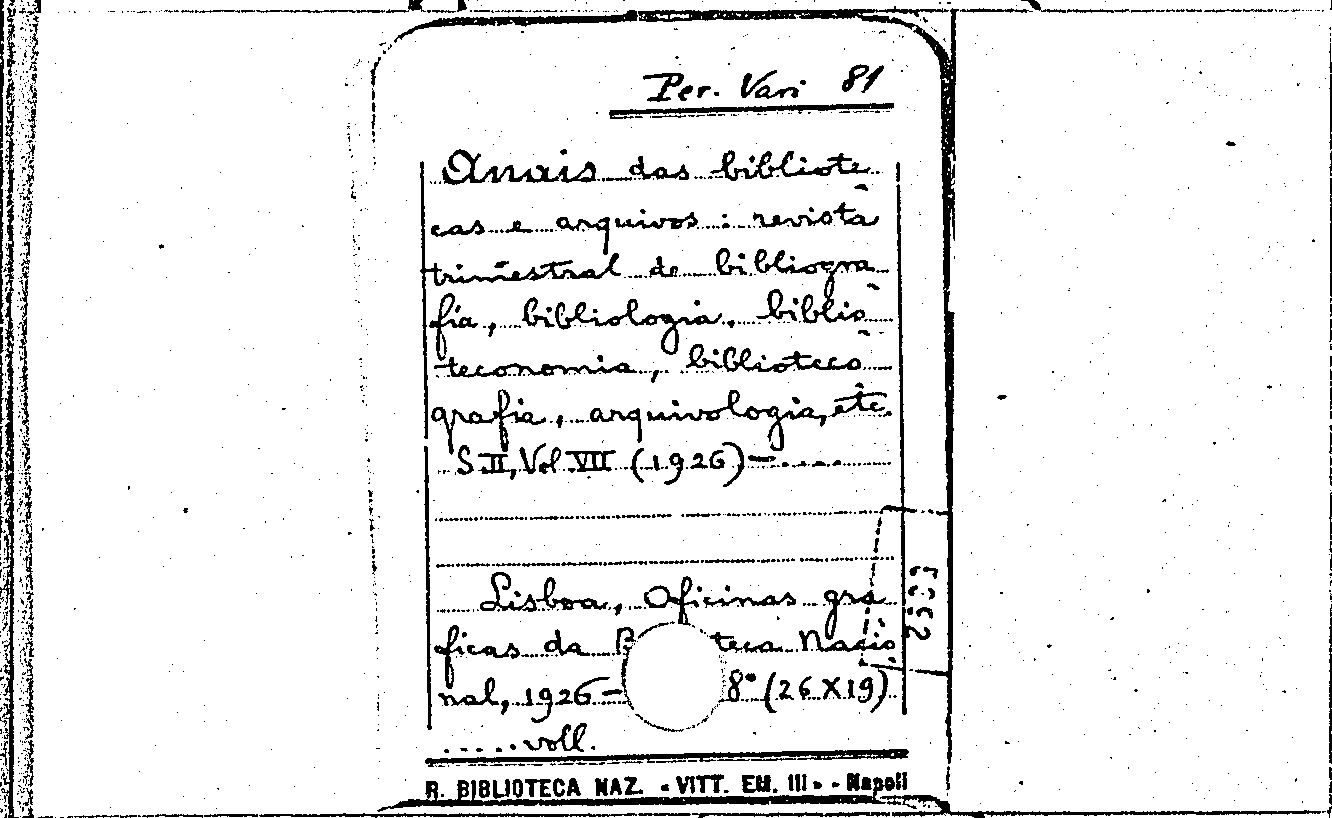 Per. Vari 81
Anais das bibliote
cas e arquivos : revista
trimestral de bibliogra
fia, bibliologia, biblio
teconomia, biblioteco
grafia, arquivologia, etc.
S. II, Vol VII (1926) — . . . .
Lisboa, Oficinas gra
ficas da B teca Nacio
nal, 1926 — 8° (26 X 19)
. . . . . voll.
R. BIBLIOTECA NAZ. « VITT. EM. III » - Napoli